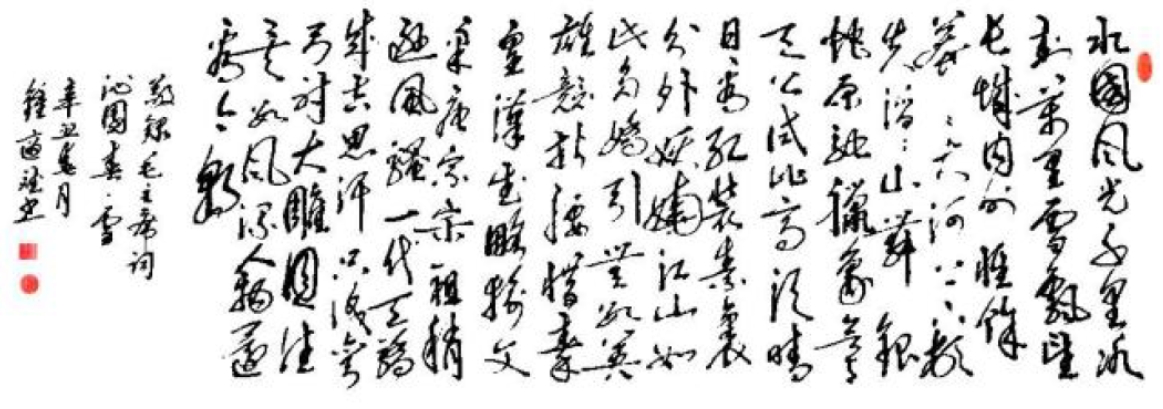 北國风光千里冰
封萬里雪飄望
长城内外惟馀
莽莽大河上下顿
失滔滔山舞銀
蛇原驰蠟象欲与
天公试比高须晴
日看红装素裹
分外妖娆江山如
此多嬌引無数英
雄競折腰惜秦
皇漢武略输文
采唐宗宋祖稍
逊風骚一代天骄
成吉思汗只识弯
弓射大雕俱往
矣数风流人物还
看今朝
敬録毛主席词
沁園春·雪
辛丑春月